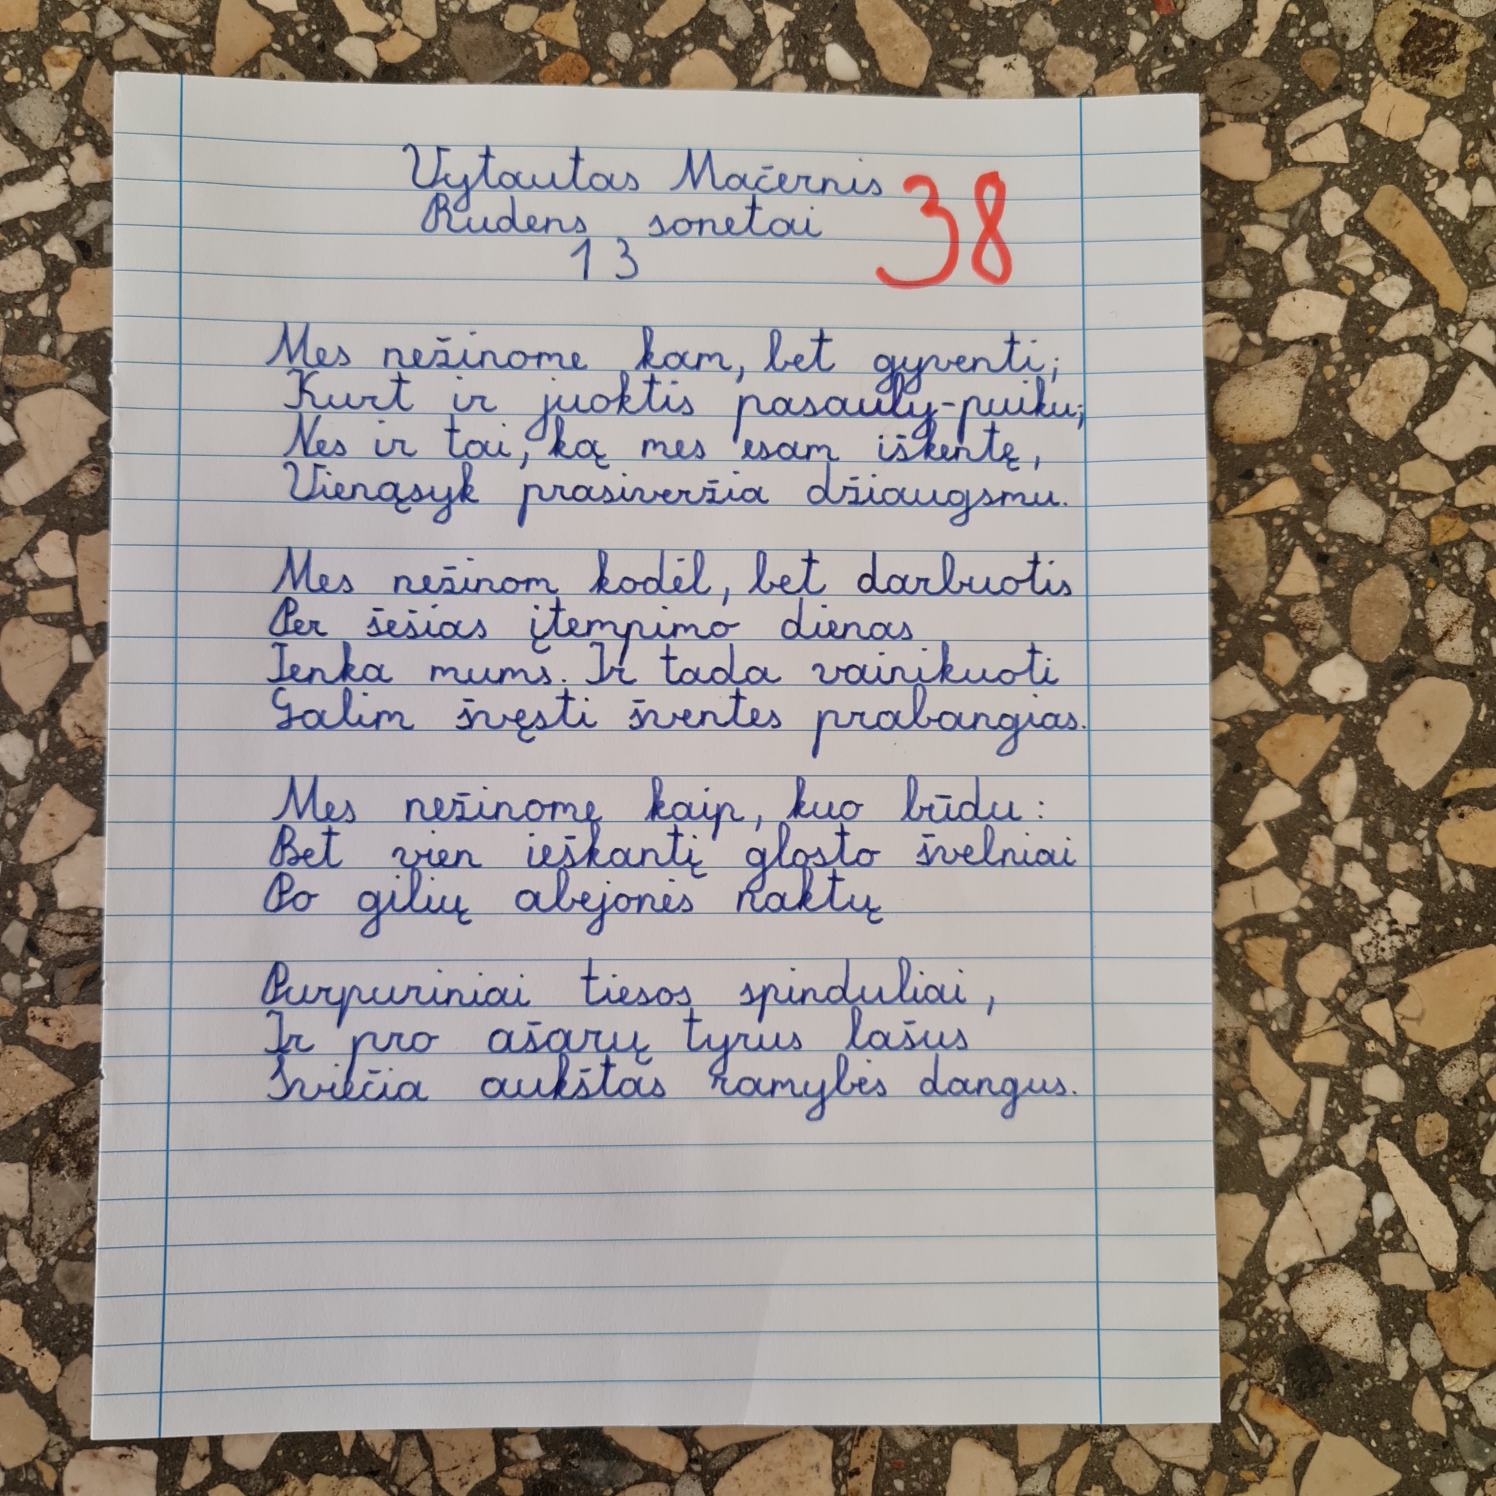 Vytautas Mačernis
38
Rudens sonetai
13
Mes nežinome kam, bet gyventi;
Kurt ir juoktis pasauly-puiku;
Nes ir tai, ką mes esam iškentę,
Vienąsyk prasiveržia džiaugsmu.
Mes nežinom kodėl, bet darbuotis
Per šešias įtempimo dienas
Tenka mums. Ir tada vainikuoti
Galim švęsti šventes prabangias.
Mes nežinome kaip, kuo būdu:
Bet vien ieškantį glosto švelniai
Po gilių abejonės naktų
Purpuriniai tiesos spinduliai,
Ir pro ašarų tyrus lašus
Šviečia aukštas ramybės dangus.